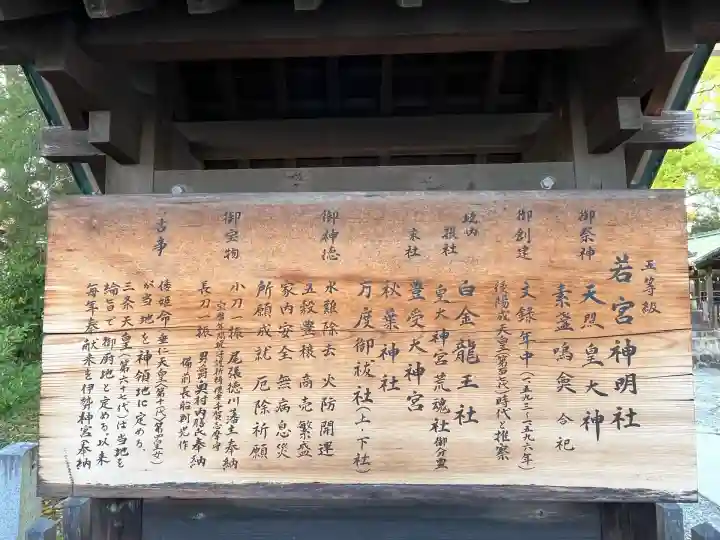 五等級
若宮神明社
御祭神 天照皇大神
素盞嗚尊 合祀
御創建 文録年中(一五九三〜一五九六年)
後陽成天皇(第百七代)時代と推察
境内 摂社 白金龍王社
皇大神宮荒魂社 御分霊
末社 豊受大神宮
秋葉神社
万度御祓社(上・下社)
御神徳 水難除去 火防開運
五穀豊穣 商売繁盛
家内安全 無病息災
所願成就 厄除祈願
御宝物 小刀一振 尾張徳川藩主奉納
長刀一振 男爵奥村内膳奉納
備前長船則光作
古事 倭姫命 垂仁天皇(第十一代)第四皇女
が当地を神領地と定める、
三条天皇(第六十七代)は当地を
綸旨で御厨地と定める以来
毎年奉献米を伊勢神宮奉納